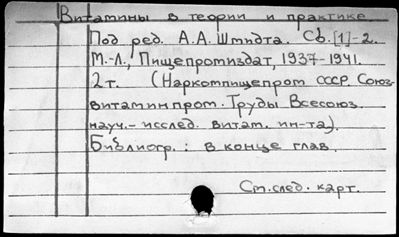 Витамины в теории и практике
Под ред. А.А. Шмидта. Сб. [1]-2.
М.-Л., Пищепромиздат, 1937-1941.
2 т. (Наркомпищепром СССР. Союз-
витаминпром. Труды Всесоюз.
науч.-исслед. витам. ин-та).
Библиогр.: в конце глав.
См. след. карт.